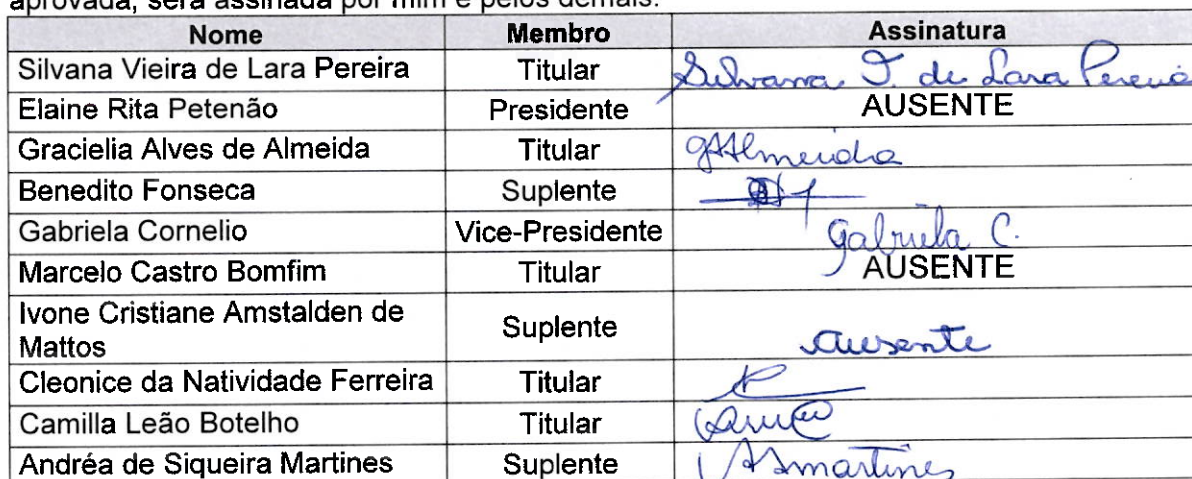 aprovada, será assinada por mim e pelos demais.
Nome Membro Assinatura
Silvana Vieira de Lara Pereira Titular Silvana V. de Lara Pereira
Elaine Rita Petenão Presidente AUSENTE
Gracielia Alves de Almeida Titular GAAlmeida
Benedito Fonseca Suplente
Gabriela Cornelio Vice-Presidente Gabriela C.
Marcelo Castro Bomfim Titular AUSENTE
Ivone Cristiane Amstalden de
Mattos Suplente Ausente
Cleonice da Natividade Ferreira Titular
Camilla Leão Botelho Titular
Andréa de Siqueira Martines Suplente ASmartines